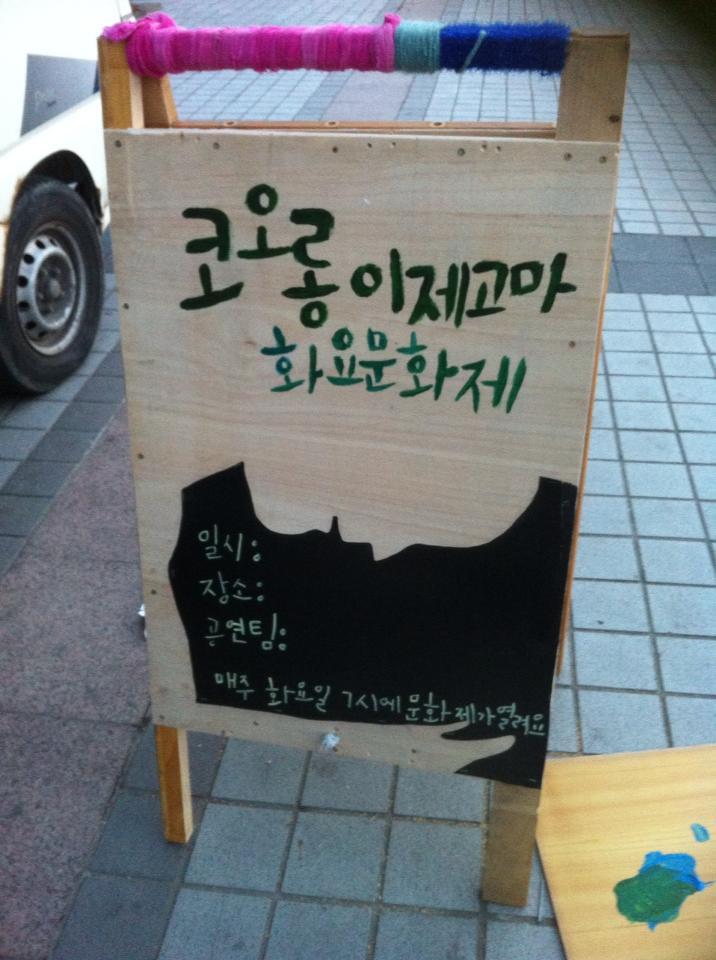 코오롱 이제고마
화요문화제
일시:
장소:
공연팀:
매주 화요일 7시에 문화제가 열려요